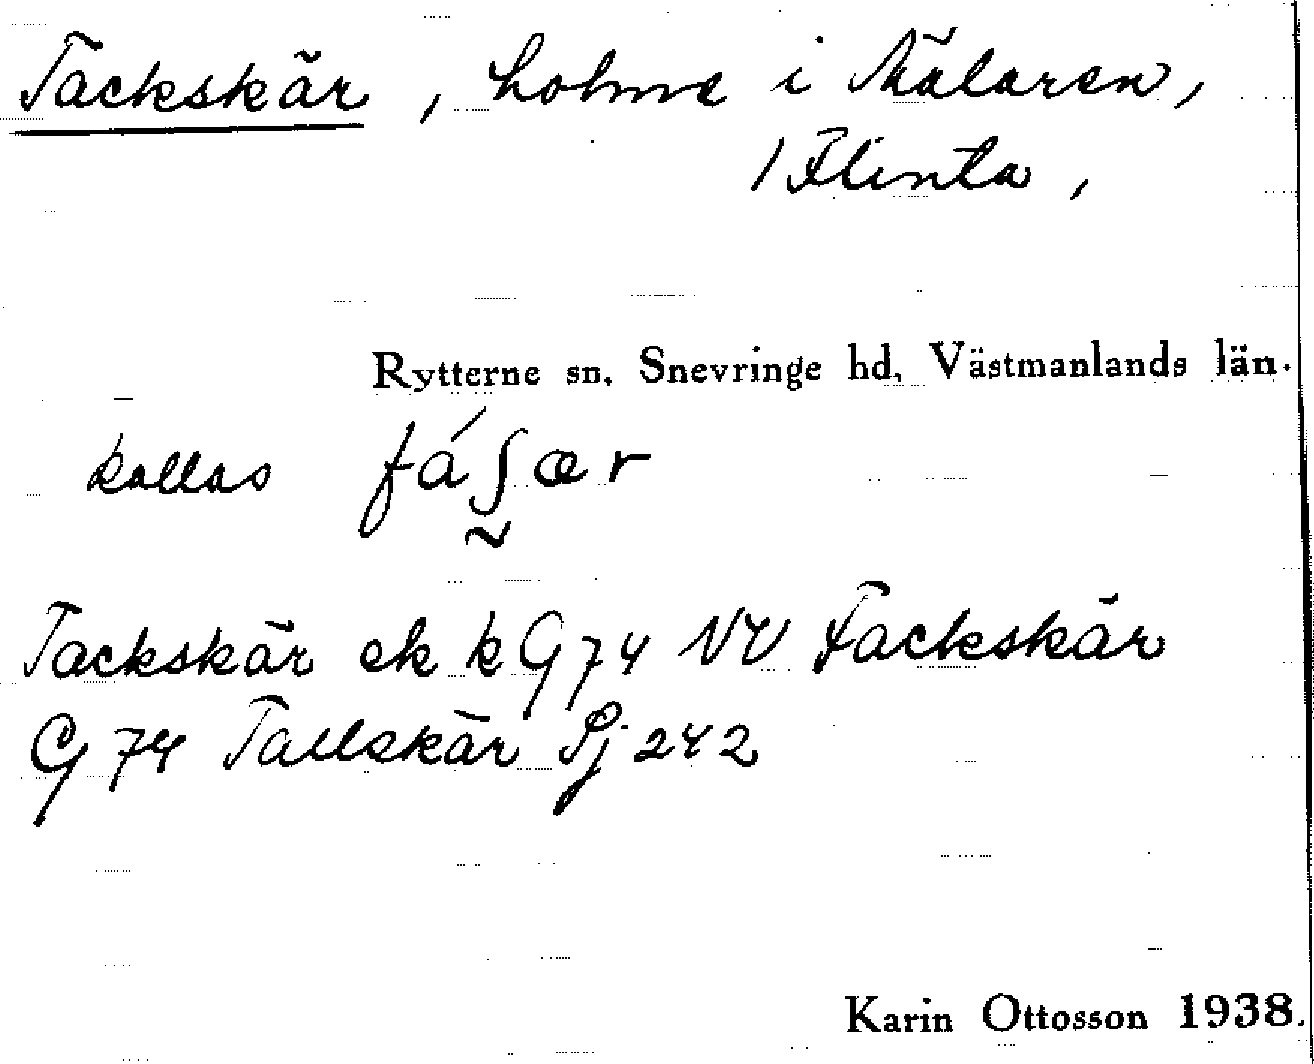 Tackskär, holme i Mälaren,
/ Flinta,
Rytterne sn. Snevringe hd, Västmanlands län.
kallas fáʃær
Tackskär ek k G 74 NV Fackskär
G 74 Tallskär Sj 242
Karin Ottosson 1938.